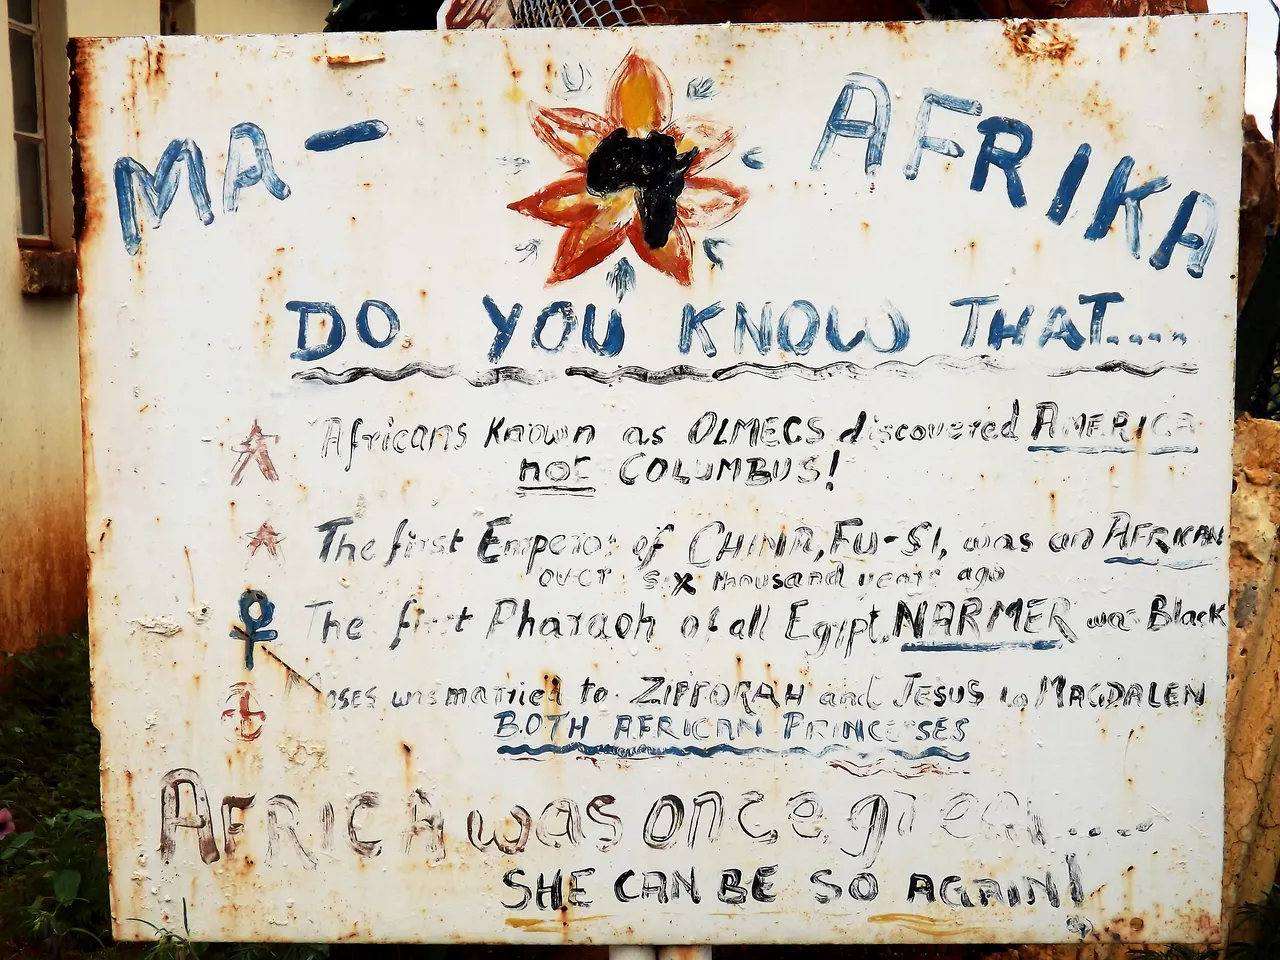 MA- AFRIKA
DO YOU KNOW THAT....
Africans Known as OLMECS discovered AMERICA
not COLUMBUS!
The first Emperor of CHINA, FU-SI, was an AFRICAN
over six thousand years ago
The first Pharaoh of all Egypt, NARMER was Black
Moses was married to ZIPPORAH and JESUS to MAGDALEN
BOTH AFRICAN PRINCESSES
AFRICA was once great....
SHE CAN BE SO AGAIN!